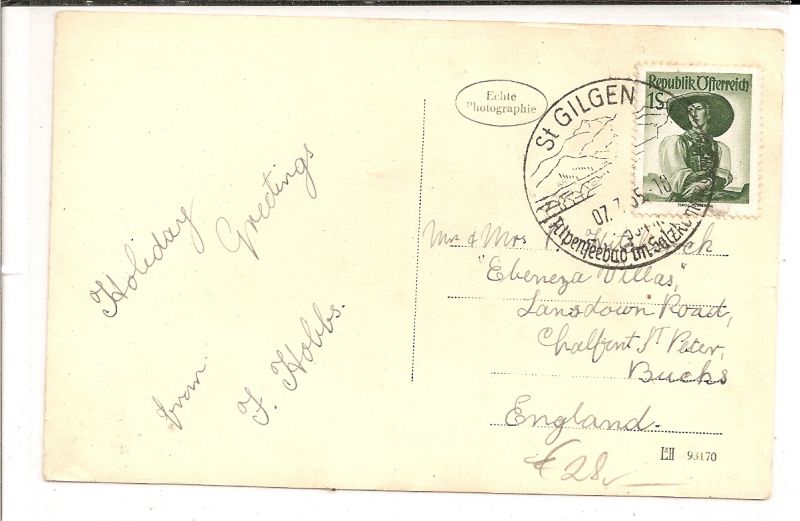 Holiday
Greetings
from
F. Hobbs.
Echte
Photographie
St GILGEN
07.7.55-18
Alpenseebad im Salzk
Republik Österreich
1S
Mr & Mrs
"Ebeneza Villas,"
Lansdown Road,
Chalfont St Peter,
Bucks
England.
€ 28,-
L&H 93170